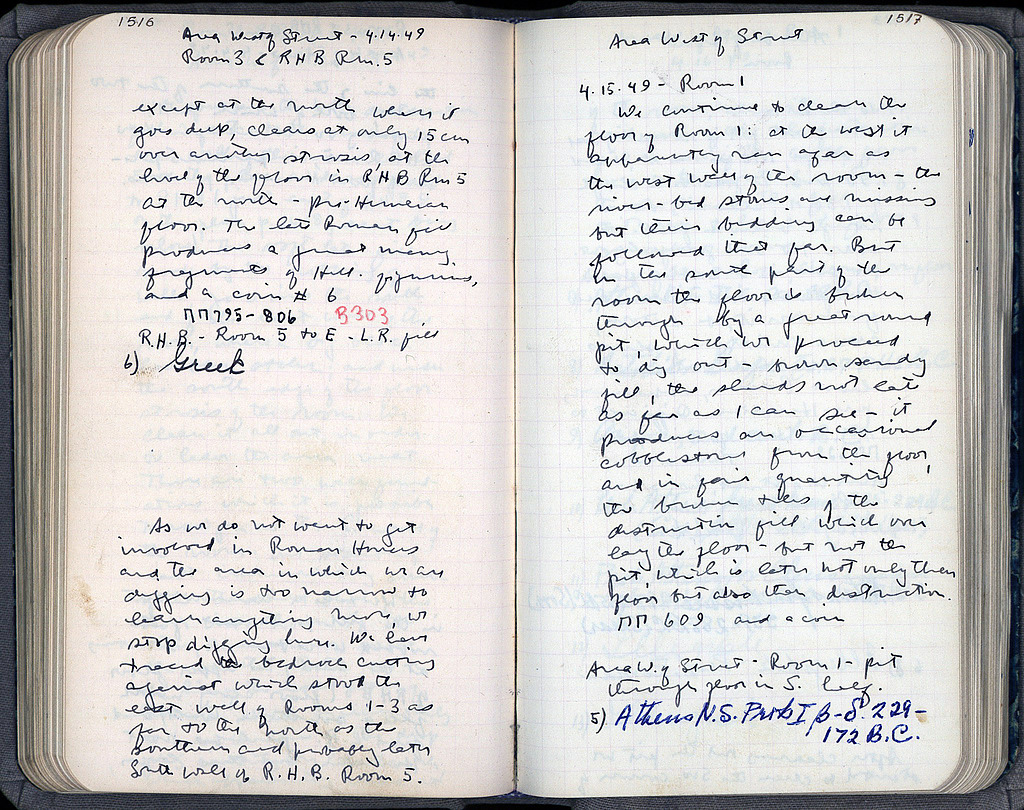 1516
Area West of Street - 4.14.49
Room 3 & R H B Rm. 5
except at the north where it
goes deep, clears at only 15 cm
over another strosis, at the
level of the floor in R H B Rm 5
at the north - pre-Herulean
floor. The late Roman fill
produces a great many
fragments of Hell. figurines,
and a coin # 6
ΠΠ795-806 B303
R.H.B. - Room 5 to E - L.R. fill
6) Greek
As we do not want to get
involved in Roman Houses
and the area in which we are
digging is too narrow to
learn anything more we
stop digging here. We have
traced bedrock cutting
against which stood the
east wall of Rooms 1-3 as
far to the north as the
southern and probably later
South wall of R.H.B. Room 5.
1517
Area West of Street
4.15.49 - Room 1
We continue to clean the
floor of Room 1: at the west it
apparently ran as far as
the west wall of the room - the
river-bed stones are missing
but their bedding can be
followed that far. But
in the south part of the
room the floor is broken
through by a great round
pit, which we proceed
to dig out - brown sandy
fill, the sherds not late
as far as I can see - it
produces an occasional
cobblestone from the floor,
and in fair quantity
the broken tiles of the
destruction fill which over
lay the floor - but not the
pit, which is later not only than
floor but also than destruction.
ΠΠ 609 and a coin
Area W. of Street - Room 1 - pit
through floor in S. half.
5) Athens N.S. Period I, β-δ. 229-
172 B.C.